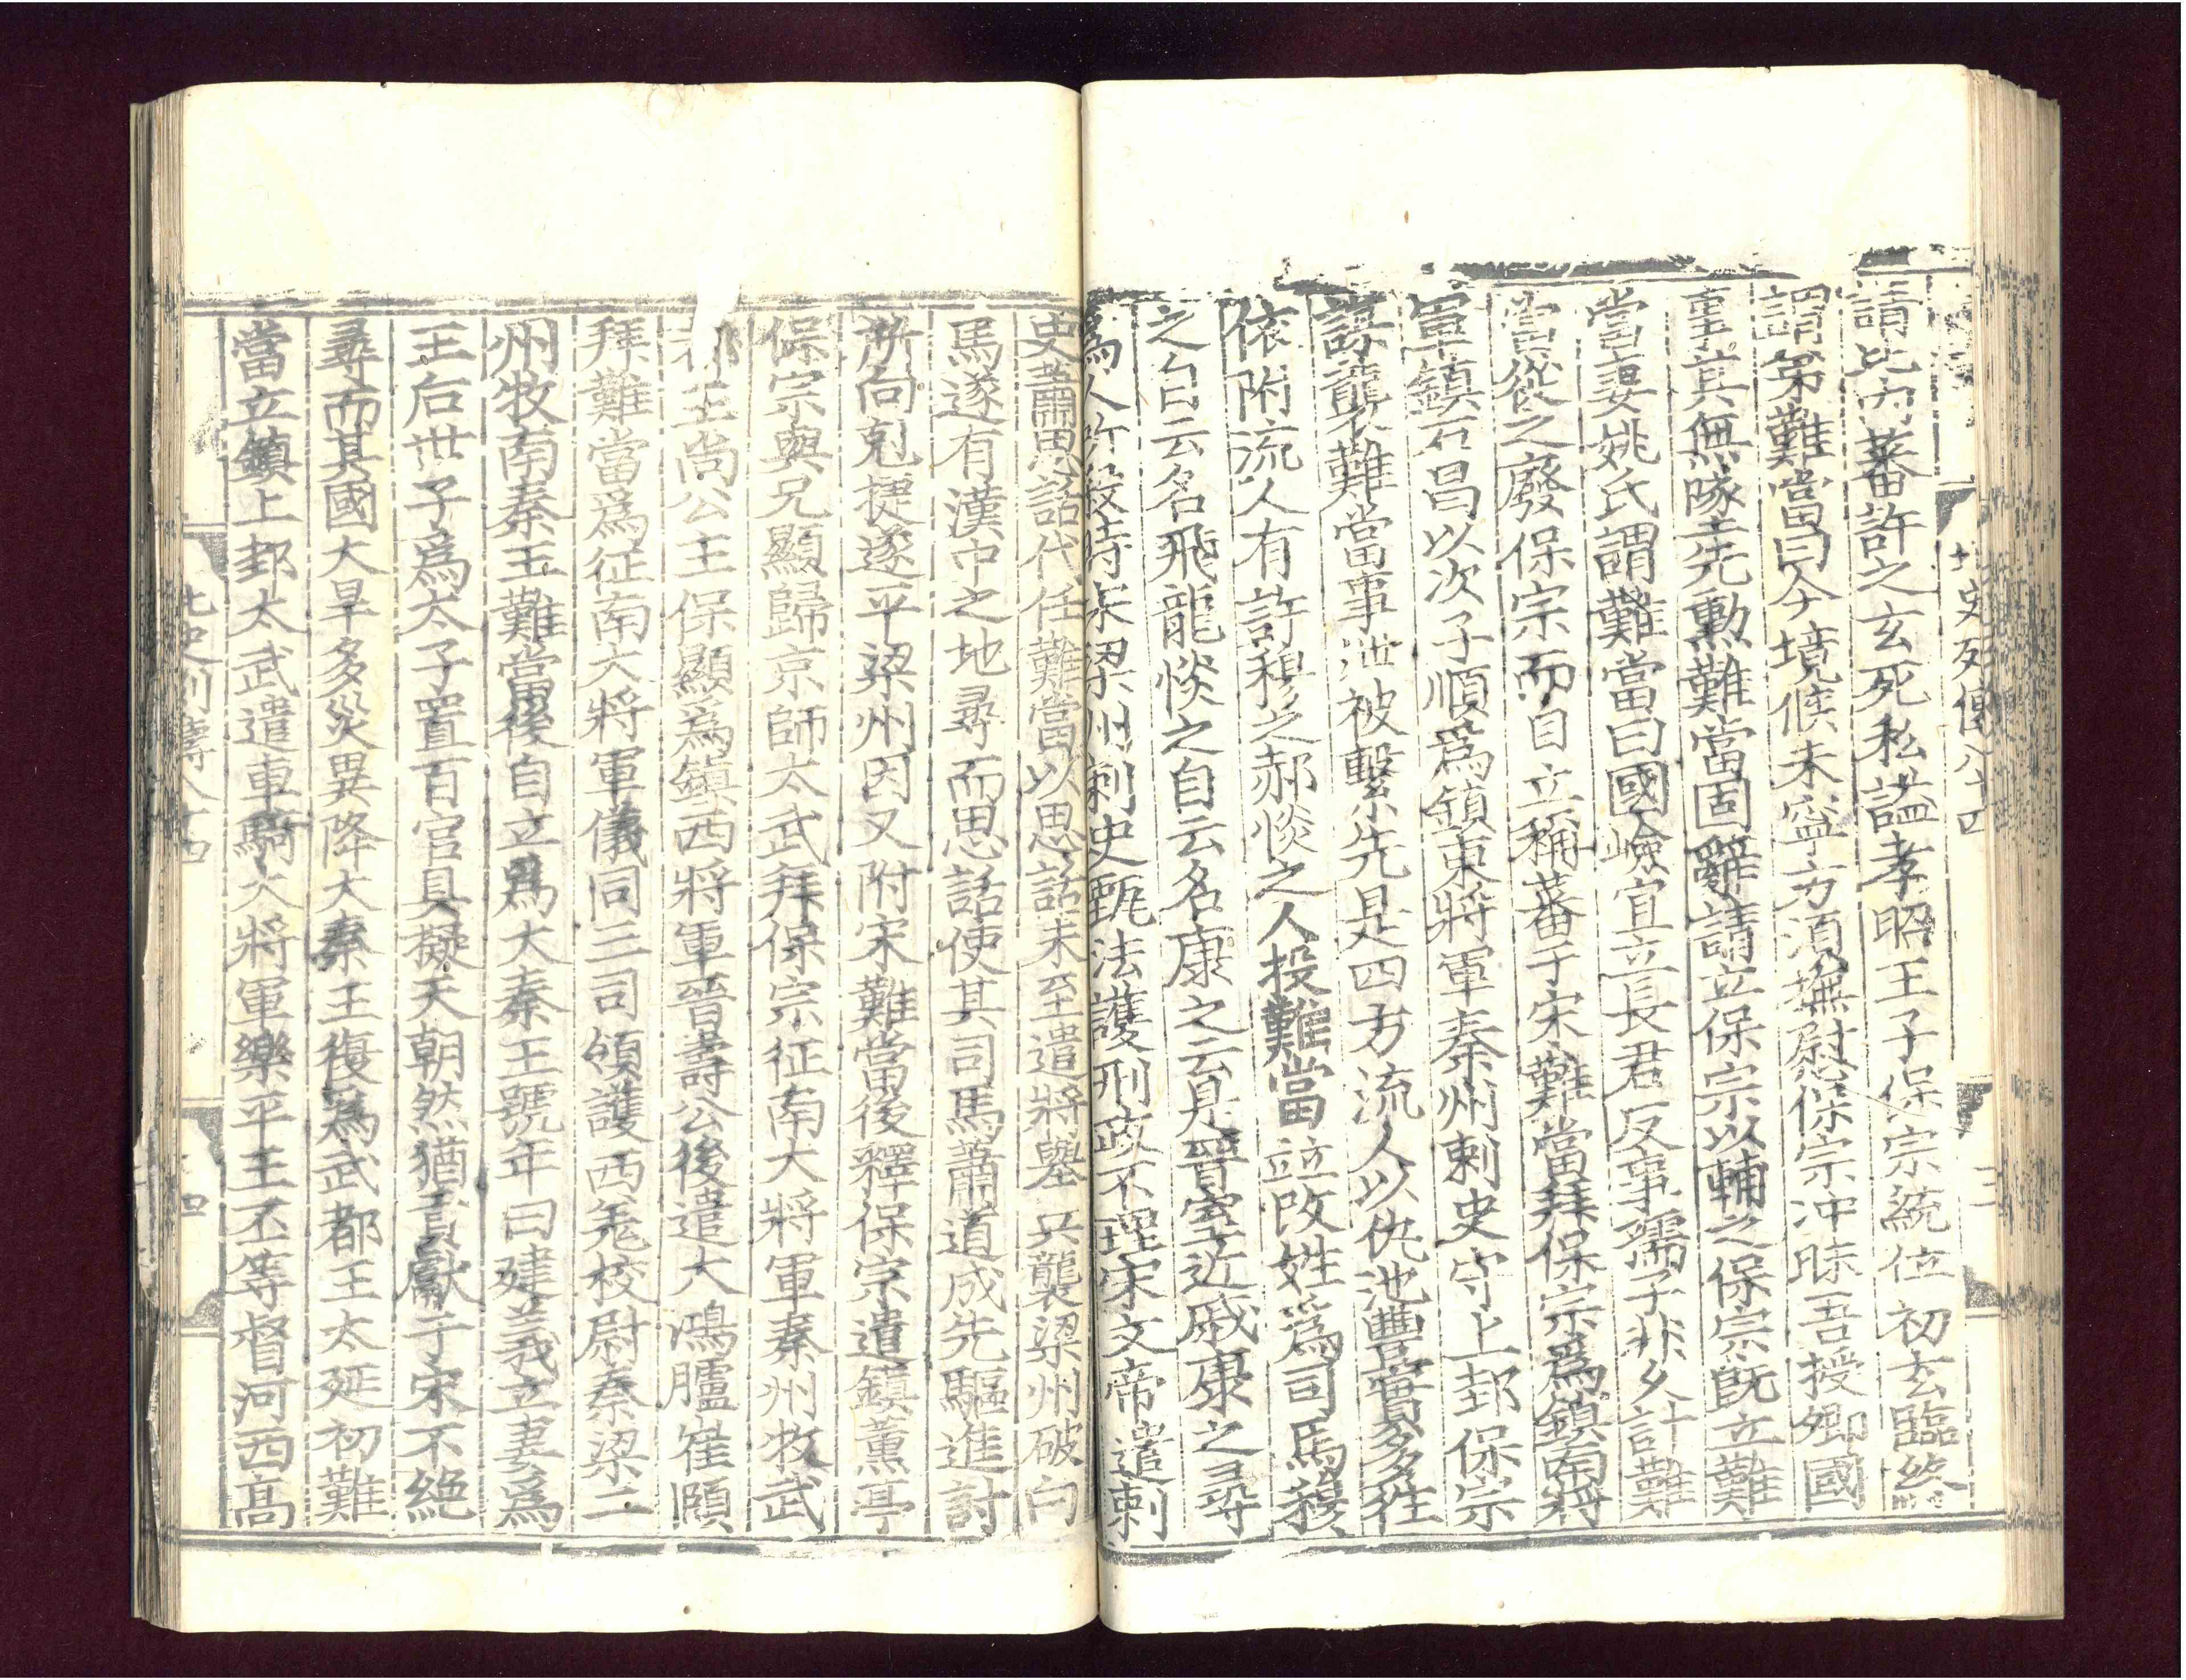 北史列傳八十四
請比內蕃許之玄死私謚孝昭王子保宗統位初玄臨終
謂弟難當曰今境候未寧方須撫慰保宗冲昧吾授卿國
事其無墜先勳難當固辭請立保宗以輔之保宗旣立難
當妻姚氏謂難當曰國嶮宜立長君反事孺子非久計難
當從之廢保宗而自立稱蕃于宋難當拜保宗爲鎮南將
軍鎮石昌以次子順爲鎮東將軍秦州刺史守上邽保宗
謀襲難當事泄被繫先是四方流人以仇池豐實多往
依附流人有許穆之郝惔之二人投難當並改姓爲司馬穆
之自云名飛龍惔之自云名康之云是晉室近戚康之尋
爲人所殺時宋梁州刺史甄法護刑政不理宋文帝遣刺
史蕭思話代任難當以思話未至遣將舉兵襲梁州破白
馬遂有漢中之地尋而思話使其司馬蕭道成先驅進討
所向剋捷遂平梁州因又附宋難當後釋保宗遣鎮薰亭
保宗與兄顯歸京師太武拜保宗征南大將軍秦州牧武
都王尚公主保顯爲鎮西將軍晉壽公後遣大鴻臚崔頤
拜難當爲征南大將軍儀同三司領護西羌校尉秦梁二
州牧南秦王難當後自立爲大秦王號年曰建義立妻爲
王后世子爲太子置百官具擬天朝然猶貢獻于宋不絕
尋而其國大旱多災異降大秦王復爲武都王太延初難
當立鎮上邽太武遣車騎大將軍樂平王丕等督河西高
北史列傳八十四
四